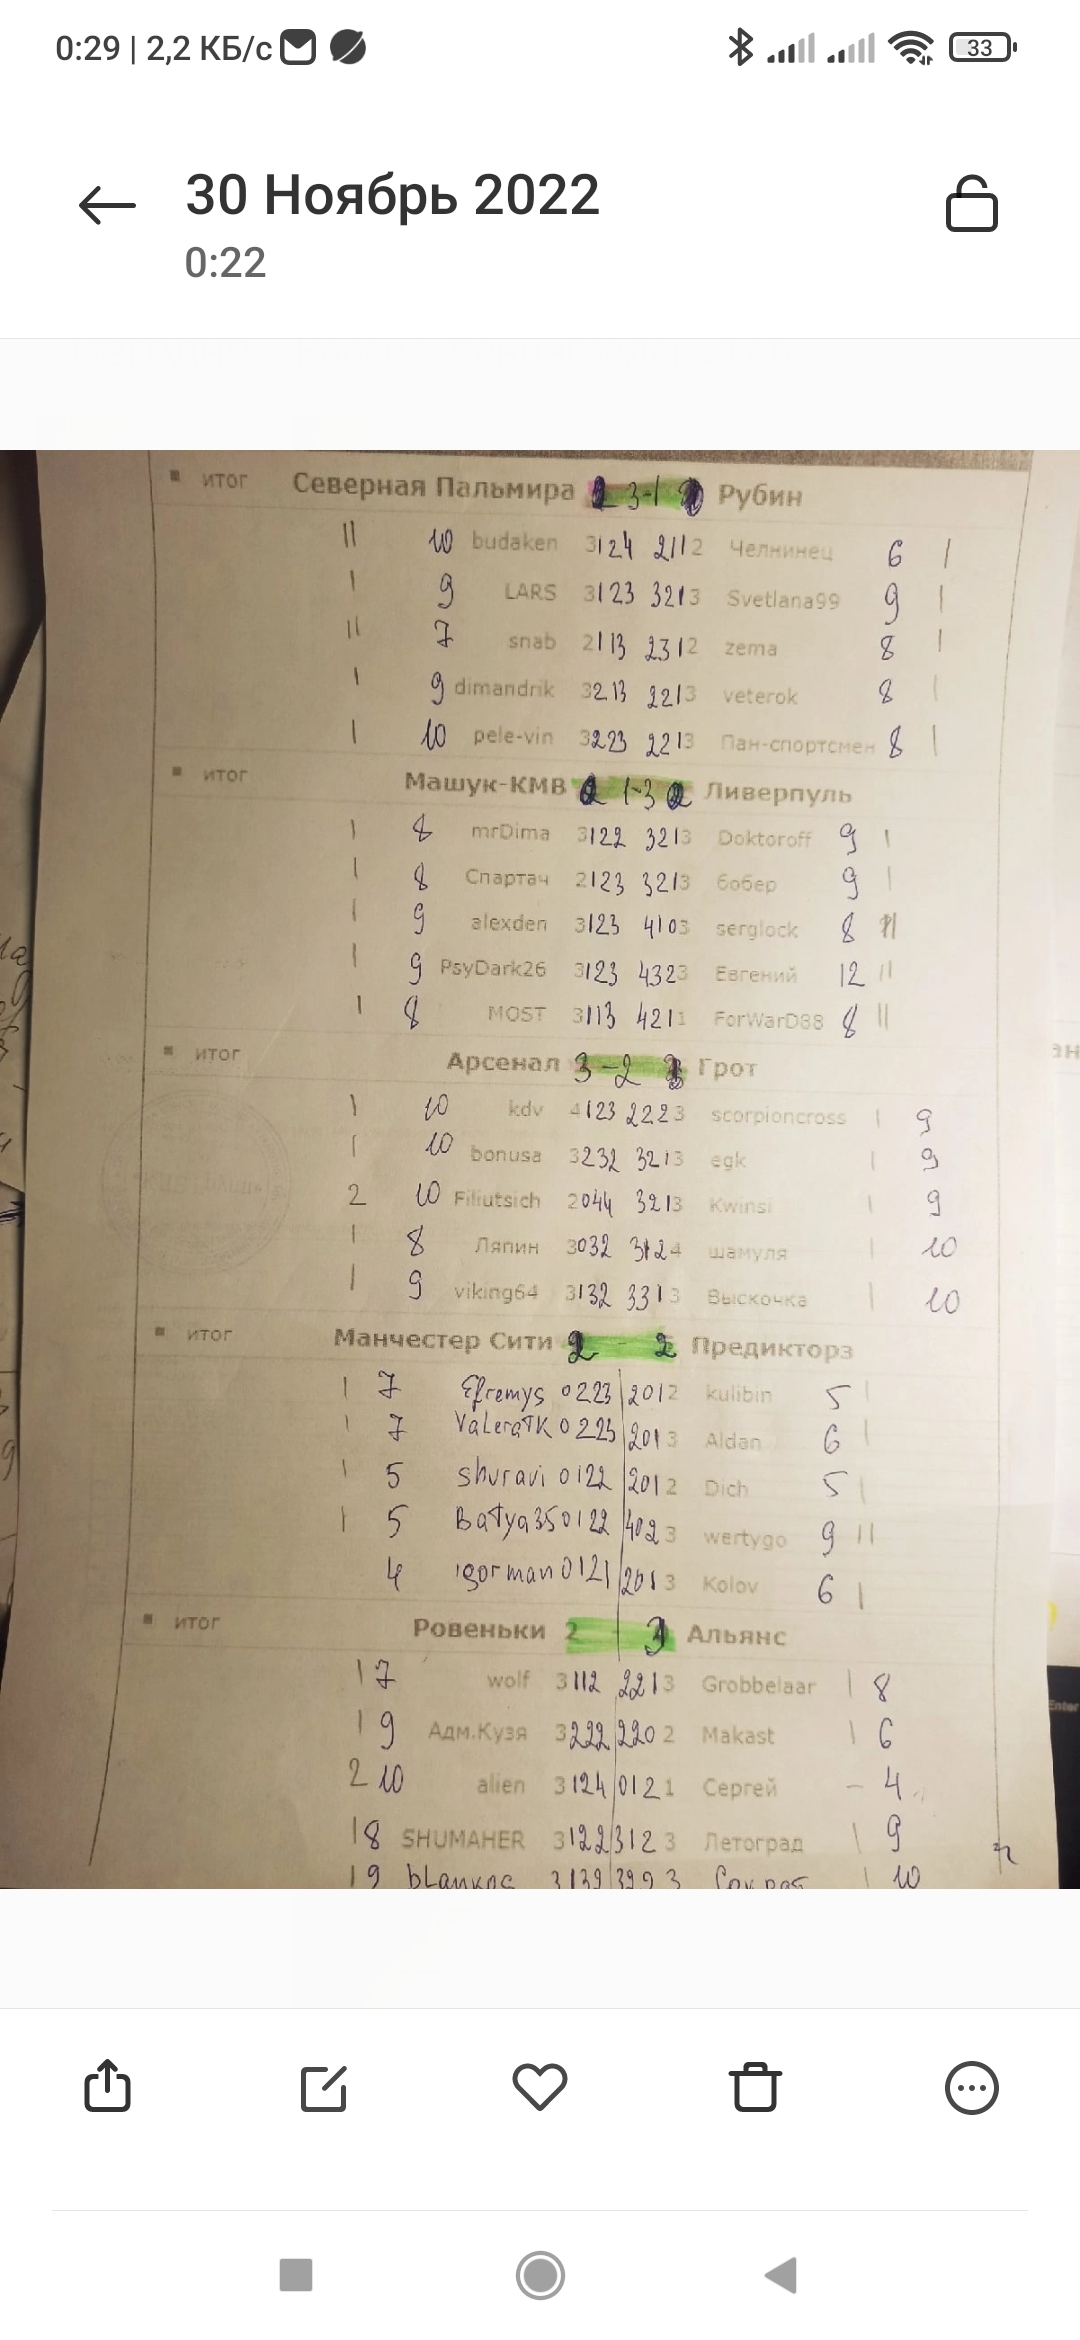 0:29 | 2,2 КБ/с 33
30 Ноябрь 2022
0:22
итог Северная Пальмира 3-1 Рубин
10 budaken 3124 2112 Челнинец 6
9 LARS 3123 3213 Svetlana99 9
7 snab 2113 2312 zema 8
9 dimandrik 3213 2213 veterok 8
10 pele-vin 3223 2213 Пан-спортсмен 8
итог Машук-КМВ 1-3 Ливерпуль
8 mrDima 3122 3213 Doktoroff 9
8 Спартач 2123 3213 бобер 9
9 alexden 3123 4103 serglock 8
9 PsyDark26 3123 4323 Евгений 12
8 MOST 3113 4211 ForWarD88 8
итог Арсенал 3-2 Грот
10 kdv 4123 2223 scorpioncross 9
10 bonusa 3232 3213 egk 9
2 10 Filiutsich 2044 3213 Kwinsi 9
8 Ляпин 3032 3124 шамуля 10
9 viking64 3132 3313 Выскочка 10
итог Манчестер Сити 2 - 2 Предикторз
7 Efremys 0223 2012 kulibin 5
7 ValeraTK 0223 2013 Aldan 6
5 shuravi 0122 2012 Dich 5
5 Batya35 0122 4023 wertygo 9
4 igorman 0121 2013 Kolov 6
итог Ровеньки 2 - 3 Альянс
7 wolf 3112 2213 Grobbelaar 8
9 Адм.Кузя 3222 2202 Makast 6
2 10 alien 3124 0121 Сергей - 4
8 SHUMAHER 3122 3123 Летоград 9
9 10